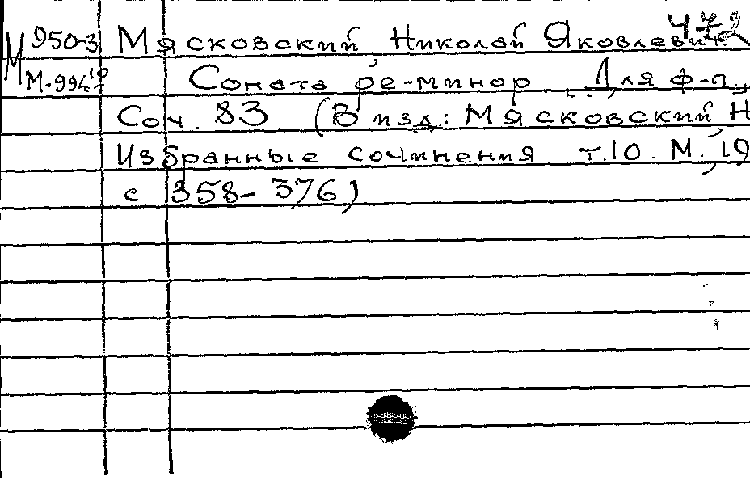 М 950-3 Мясковский Николай Яковлевич
М-994 Соната ре-минор Для ф-п.
Соч. 83 (В изд: Мясковский Н
Избранные сочинения т.10. М., 19
с 358-376)